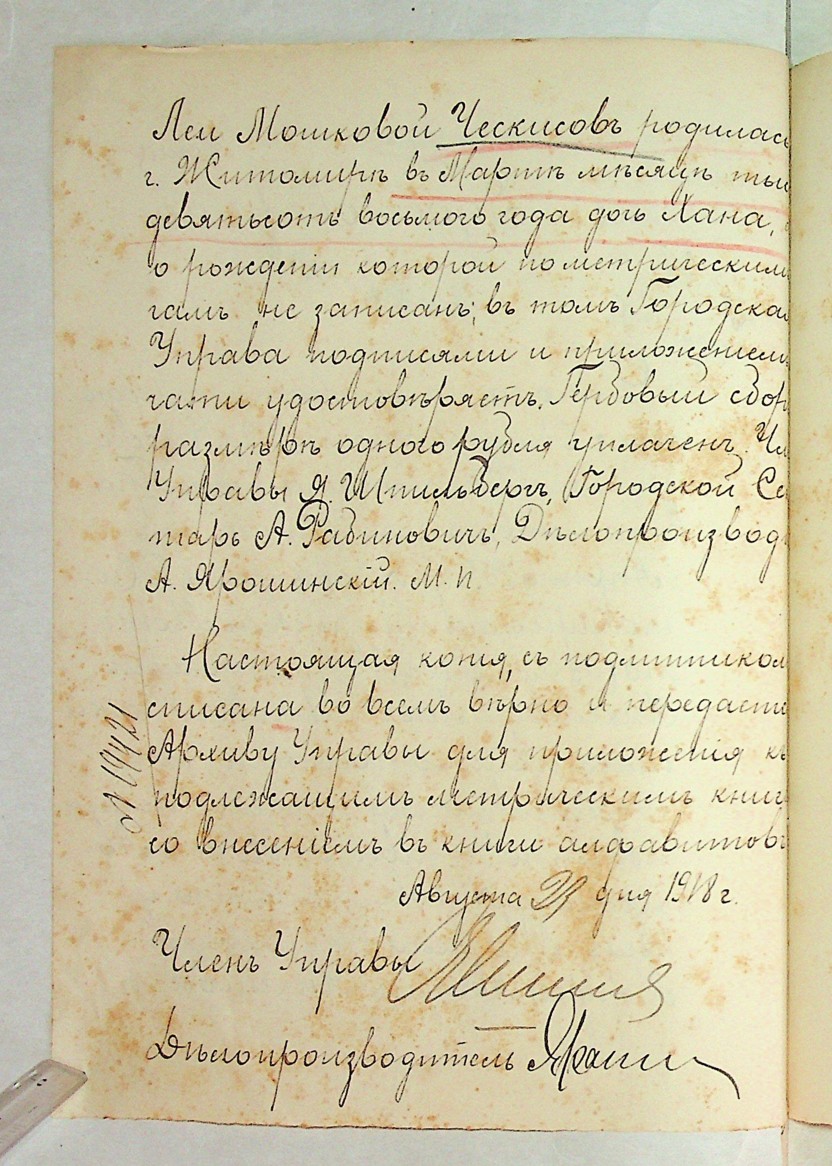 Леи Мошковой Ческисовъ родилась
г. Житомирѣ въ Мартѣ мѣсяцѣ тыс
девятьсотъ восьмого года дочь Хана,
о рожденіи которой по метрическимъ
гамъ не записанъ; въ томъ Городская
Управа подписями и приложеніемъ
чати удостовѣряетъ. Гербовый сбор
размѣрѣ одного рубля уплаченъ. Чл
Управы Я. Шпильбергъ, Городской Се
тарь А. Рабиновичъ, Дѣлопроизвод
А. Ярошинскій. М. п
Настоящая копія, съ подлинником
списана во всемъ вѣрно и передаетс
Архиву Управы для приложенія къ
подлежащимъ метрическимъ книг
со внесеніемъ въ книги алфавитовъ
Августа 29 дня 1918 г.
Членъ Управы
Дѣлопроизводитель